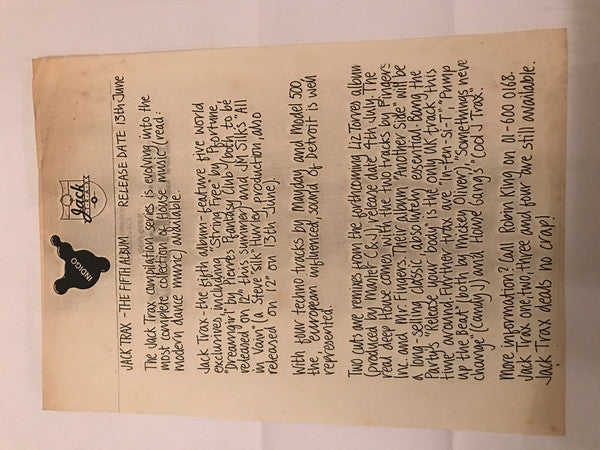 INDIGO
Jack
TRAX
JACK TRAX - THE FIFTH ALBUM RELEASE DATE 13th June.
The Jack Trax compilation series is evolving into the
most complete collection of House music (read:
modern dance music) available.
Jack Trax - the fifth album - feature five world
exclusives including "String Free" by Phortune
"Dreamgirl" by Pierre's Fantasy Club (both to be
released on 12" this summer) and JM Silk's "All
in Vain" (a Steve 'Silk' Hurley production, also
released on 12" on 13th June).
With four techno tracks by Mayday and Model 500,
the european influenced sound of Detroit is well
represented.
Two cuts are remixes from the forthcoming Liz Torres album
(produced by Master C&J), release date 4th July. The
real deep House comes with the two tracks by Fingers
Inc and Mr. Fingers. Their album "Another Side" will be
a long-selling classic, absolutely essential. Bang The
Party's "Release your body" is the only UK track this
time around. Further trax are "In-ten-si-T", "Pump
up the Beat" (both by Mickey Oliver), "Somethings never
change" (Candy J) and House Gang's "Cool J Trax".
More information? Call Robin King on 01-600 0168.
Jack Trax one, two, three and four are still available.
Jack Trax deals no crap!